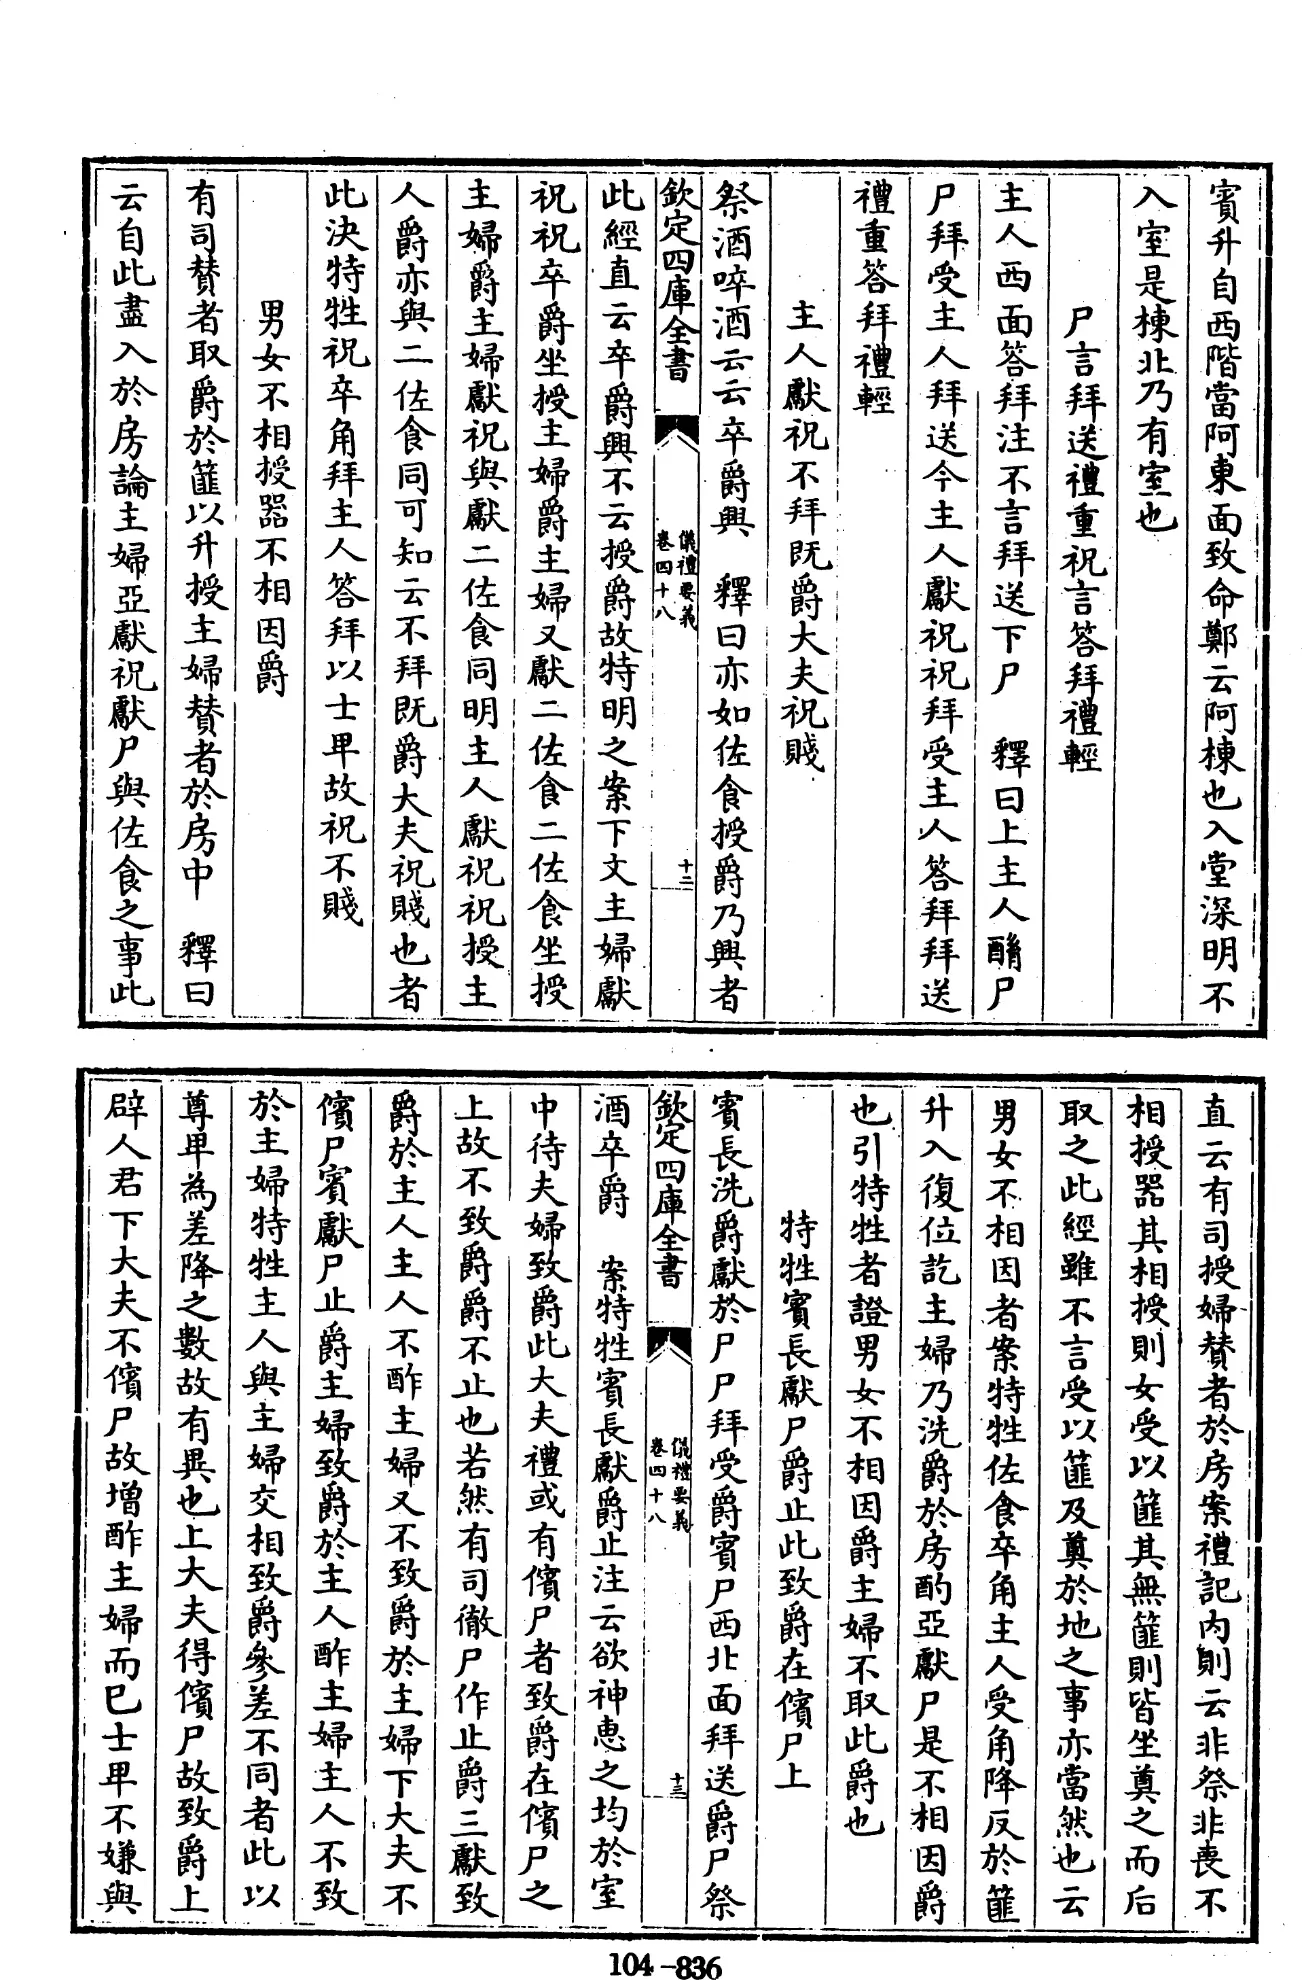 賓升自西階當阿東面致命鄭云阿棟也入堂深明不
入室是棟北乃有室也
尸言拜送禮重祝言答拜禮輕
主人西面答拜注不言拜送下尸　釋曰上主人酳尸
尸拜受主人拜送今主人獻祝祝拜受主人答拜拜送
禮重答拜禮輕
主人獻祝不拜既爵大夫祝賤
祭酒啐酒云云卒爵興　釋曰亦如佐食授爵乃興者
欽定四庫全書　儀禮要義　卷四十八　十二
此經直云卒爵興不云授爵故特明之案下文主婦獻
祝祝卒爵坐授主婦爵主婦又獻二佐食二佐食坐授
主婦爵主婦獻祝與獻二佐食同明主人獻祝祝授主
人爵亦與二佐食同可知云不拜既爵大夫祝賤也者
此決特牲祝卒角拜主人答拜以士卑故祝不賤
男女不相授器不相因爵
有司贊者取爵於篚以升授主婦贊者於房中　釋曰
云自此盡入於房論主婦亞獻祝獻尸與佐食之事此
直云有司授婦贊者於房案禮記內則云非祭非喪不
相授器其相授則女受以篚其無篚則皆坐奠之而后
取之此經雖不言受以篚及奠於地之事亦當然也云
男女不相因者案特牲佐食卒角主人受角降反於篚
升入復位訖主婦乃洗爵於房酌亞獻尸是不相因爵
也引特牲者證男女不相因爵主婦不取此爵也
特牲賓長獻尸爵止此致爵在儐尸上
賓長洗爵獻於尸尸拜受爵賓尸西北面拜送爵尸祭
欽定四庫全書　儀禮要義　卷四十八　十三
酒卒爵　案特牲賓長獻爵止注云欲神惠之均於室
中待夫婦致爵此大夫禮或有儐尸者致爵在儐尸之
上故不致爵爵不止也若然有司徹尸作止爵三獻致
爵於主人主人不酢主婦又不致爵於主婦下大夫不
儐尸賓獻尸止爵主婦致爵於主人酢主婦主人不致
於主婦特牲主人與主婦交相致爵參差不同者此以
尊卑為差降之數故有異也上大夫得儐尸故致爵上
辟人君下大夫不儐尸故增酢主婦而已士卑不嫌與
104-836